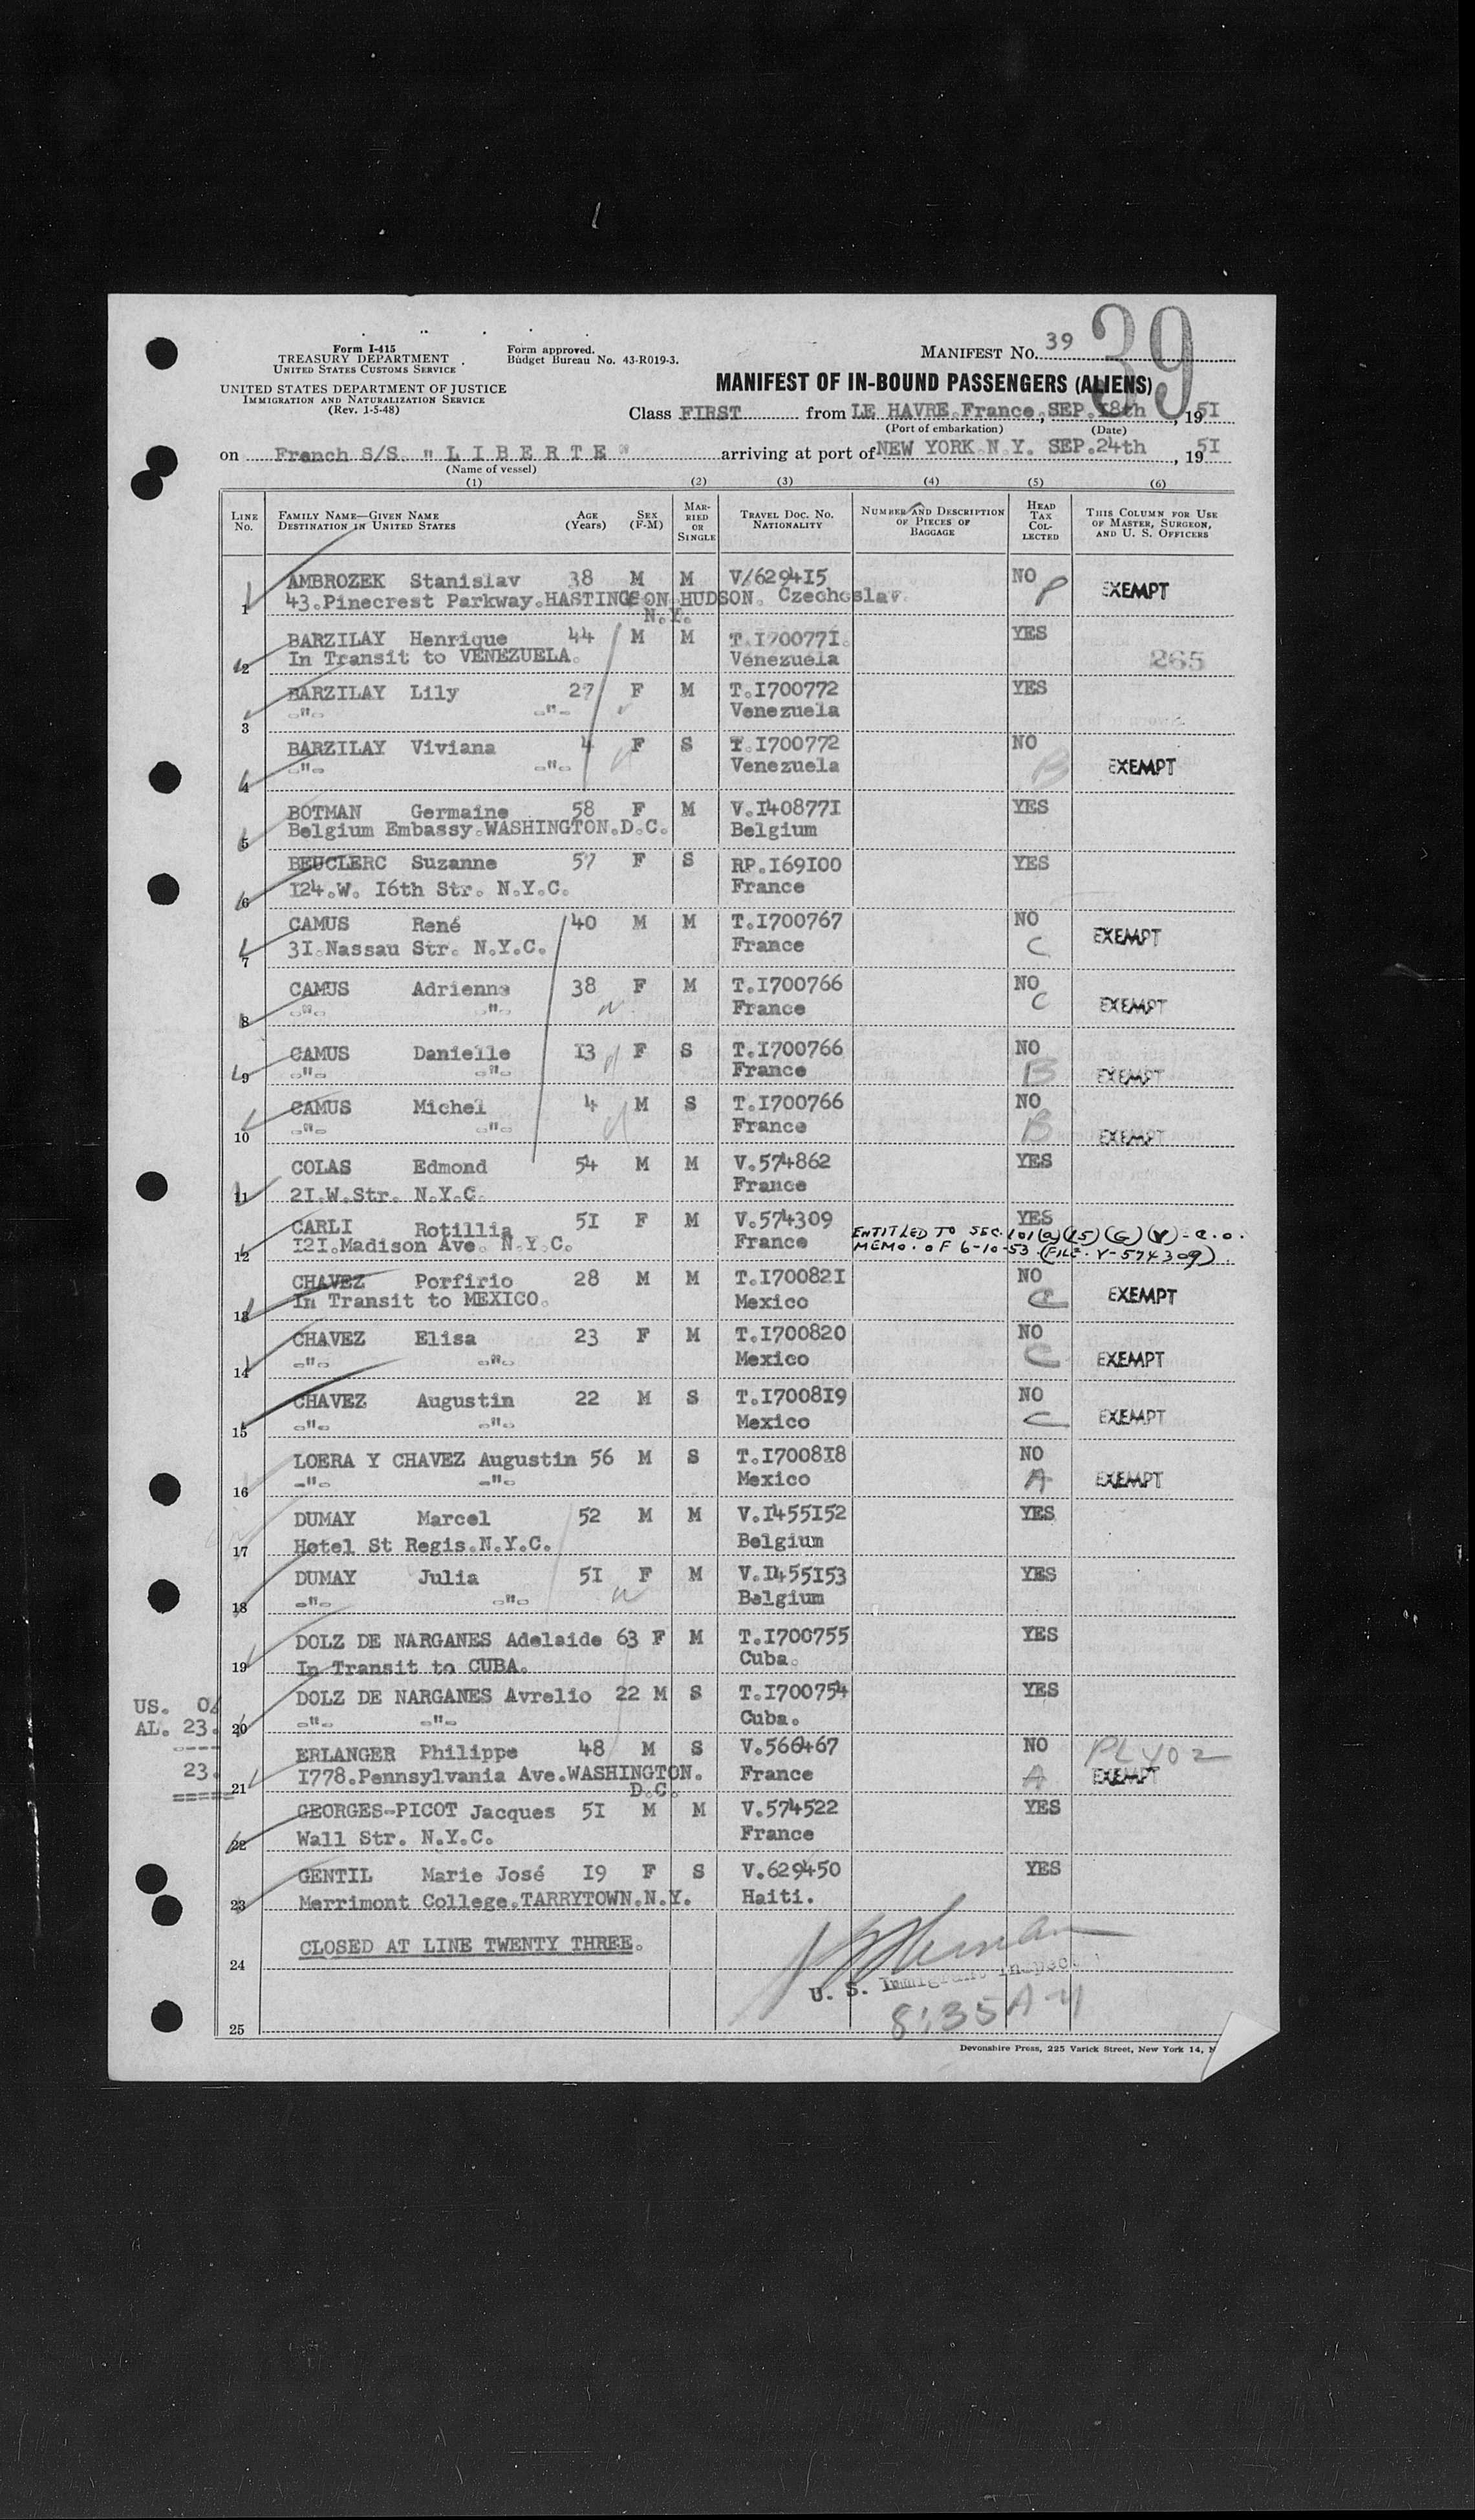 39
Form I-415
TREASURY DEPARTMENT
UNITED STATES CUSTOMS SERVICE
Form approved.
Budget Bureau No. 43-R019-3.
MANIFEST NO. 39
UNITED STATES DEPARTMENT OF JUSTICE
IMMIGRATION AND NATURALIZATION SERVICE
(Rev. 1-5-48)
MANIFEST OF IN-BOUND PASSENGERS (ALIENS)
Class FIRST from LE HAVRE.France., SEP.18th, 1951
(Port of embarkation) (Date)
on French S/S. "LIBERTE" arriving at port of NEW YORK.N.Y. SEP.24th, 1951
(Name of vessel)
(1) (2) (3) (4) (5) (6)
LINE No. FAMILY NAME—GIVEN NAME DESTINATION IN UNITED STATES AGE (Years) SEX (F-M) MARRIED OR SINGLE TRAVEL DOC. NO. NATIONALITY NUMBER AND DESCRIPTION OF PIECES OF BAGGAGE HEAD TAX COLLECTED THIS COLUMN FOR USE OF MASTER, SURGEON, AND U. S. OFFICERS
1 AMBROZEK Stanislav 38 M M V/629415 NO P EXEMPT
43.Pinecrest Parkway.HASTINGS ON HUDSON. Czechoslav.
N.Y.
2 BARZILAY Henrique 44 M M T.I700771. YES
In Transit to VENEZUELA. Venezuela 265
3 BARZILAY Lily 27 F M T.I700772 YES
-"- -"- Venezuela
4 BARZILAY Viviana 4 F S T.I700772 NO B EXEMPT
-"- -"- Venezuela
5 BOTMAN Germaine 58 F M V.I408771 YES
Belgium Embassy.WASHINGTON.D.C. Belgium
6 BEUCLERC Suzanne 57 F S RP.I69I00 YES
I24.W. I6th Str. N.Y.C. France
7 CAMUS René 40 M M T.I700767 NO C EXEMPT
3I.Nassau Str. N.Y.C. France
8 CAMUS Adrienne 38 F M T.I700766 NO C EXEMPT
-"- -"- France
9 CAMUS Danielle I3 F S T.I700766 NO B EXEMPT
-"- -"- France
10 CAMUS Michel 4 M S T.I700766 NO B EXEMPT
-"- -"- France
11 COLAS Edmond 54 M M V.574862 YES
2I.W.Str. N.Y.C. France
12 CARLI Rotillia 5I F M V.574309 YES
I2I.Madison Ave. N.Y.C. France
ENTITLED TO SEC. 101(a)(15)(G)(V) - C.O.
MEMO. OF 6-10-53 (FILE. V-574309).
13 CHAVEZ Porfirio 28 M M T.I70082I NO C EXEMPT
In Transit to MEXICO. Mexico
14 CHAVEZ Elisa 23 F M T.I700820 NO C EXEMPT
-"- -"- Mexico
15 CHAVEZ Augustin 22 M S T.I7008I9 NO C EXEMPT
-"- -"- Mexico
16 LOERA Y CHAVEZ Augustin 56 M S T.I7008I8 NO A EXEMPT
-"- -"- Mexico
17 DUMAY Marcel 52 M M V.I455I52 YES
Hotel St Regis.N.Y.C. Belgium
18 DUMAY Julia 5I F M V.I455I53 YES
-"- -"- Belgium
19 DOLZ DE NARGANES Adelaide 63 F M T.I700755 YES
In Transit to CUBA. Cuba.
20 DOLZ DE NARGANES Avrelio 22 M S T.I700754 YES
-"- -"- Cuba.
US. 0.
AL. 23.
----
23.
=====
21 ERLANGER Philippe 48 M S V.566467 NO A PL 402 EXEMPT
I778.Pennsylvania Ave.WASHINGTON. France
D.C.
22 GEORGES-PICOT Jacques 5I M M V.574522 YES
Wall Str. N.Y.C. France
23 GENTIL Marie José I9 F S V.629450 YES
Merrimont College.TARRYTOWN.N.Y. Haiti.
24 CLOSED AT LINE TWENTY THREE.
U. S. Immigrant Inspector
8:35 AM
25
Devonshire Press, 225 Varick Street, New York 14, N